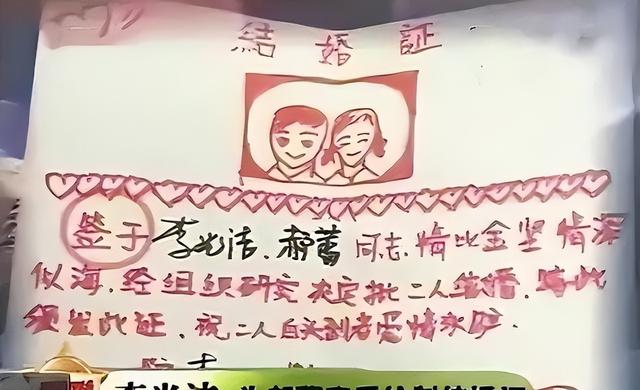 結婚証
签于李光洁、郝蕾同志,情比金坚情深
似海,经组织研究决定批二人结婚,特此
颁发此证,祝二人白头到老爱情永驴.
李光洁